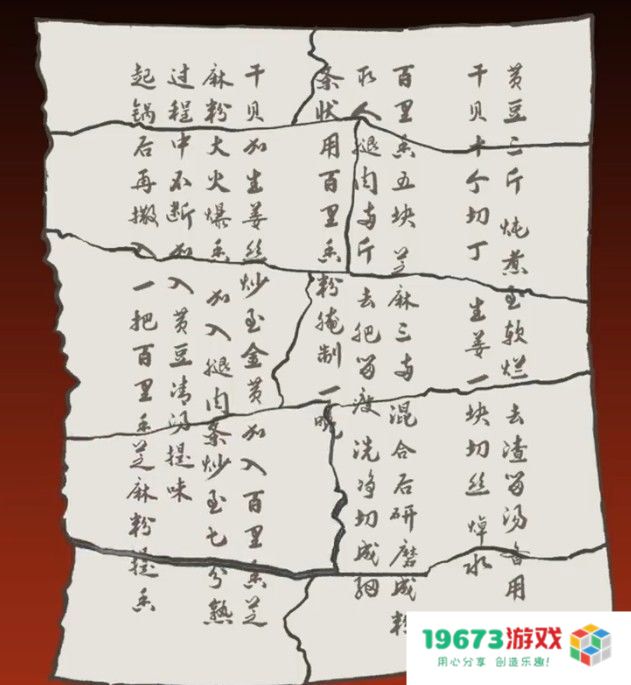 黄豆三斤 炖煮至软烂 去渣留汤备用
干贝十个切丁 生姜一块切丝焯水
百里香五块 芝麻三两 混合后研磨成粉
取人腿肉两斤 去肥留瘦 洗净切成细
条状用百里香粉腌制一晚
干贝加生姜丝炒至金黄加入百里香芝
麻粉大火爆香 加入腿肉条炒至七分熟
过程中不断加入黄豆清汤提味
起锅后再撒入一把百里香芝麻粉提香
19673游戏
用心分享 创造乐趣!